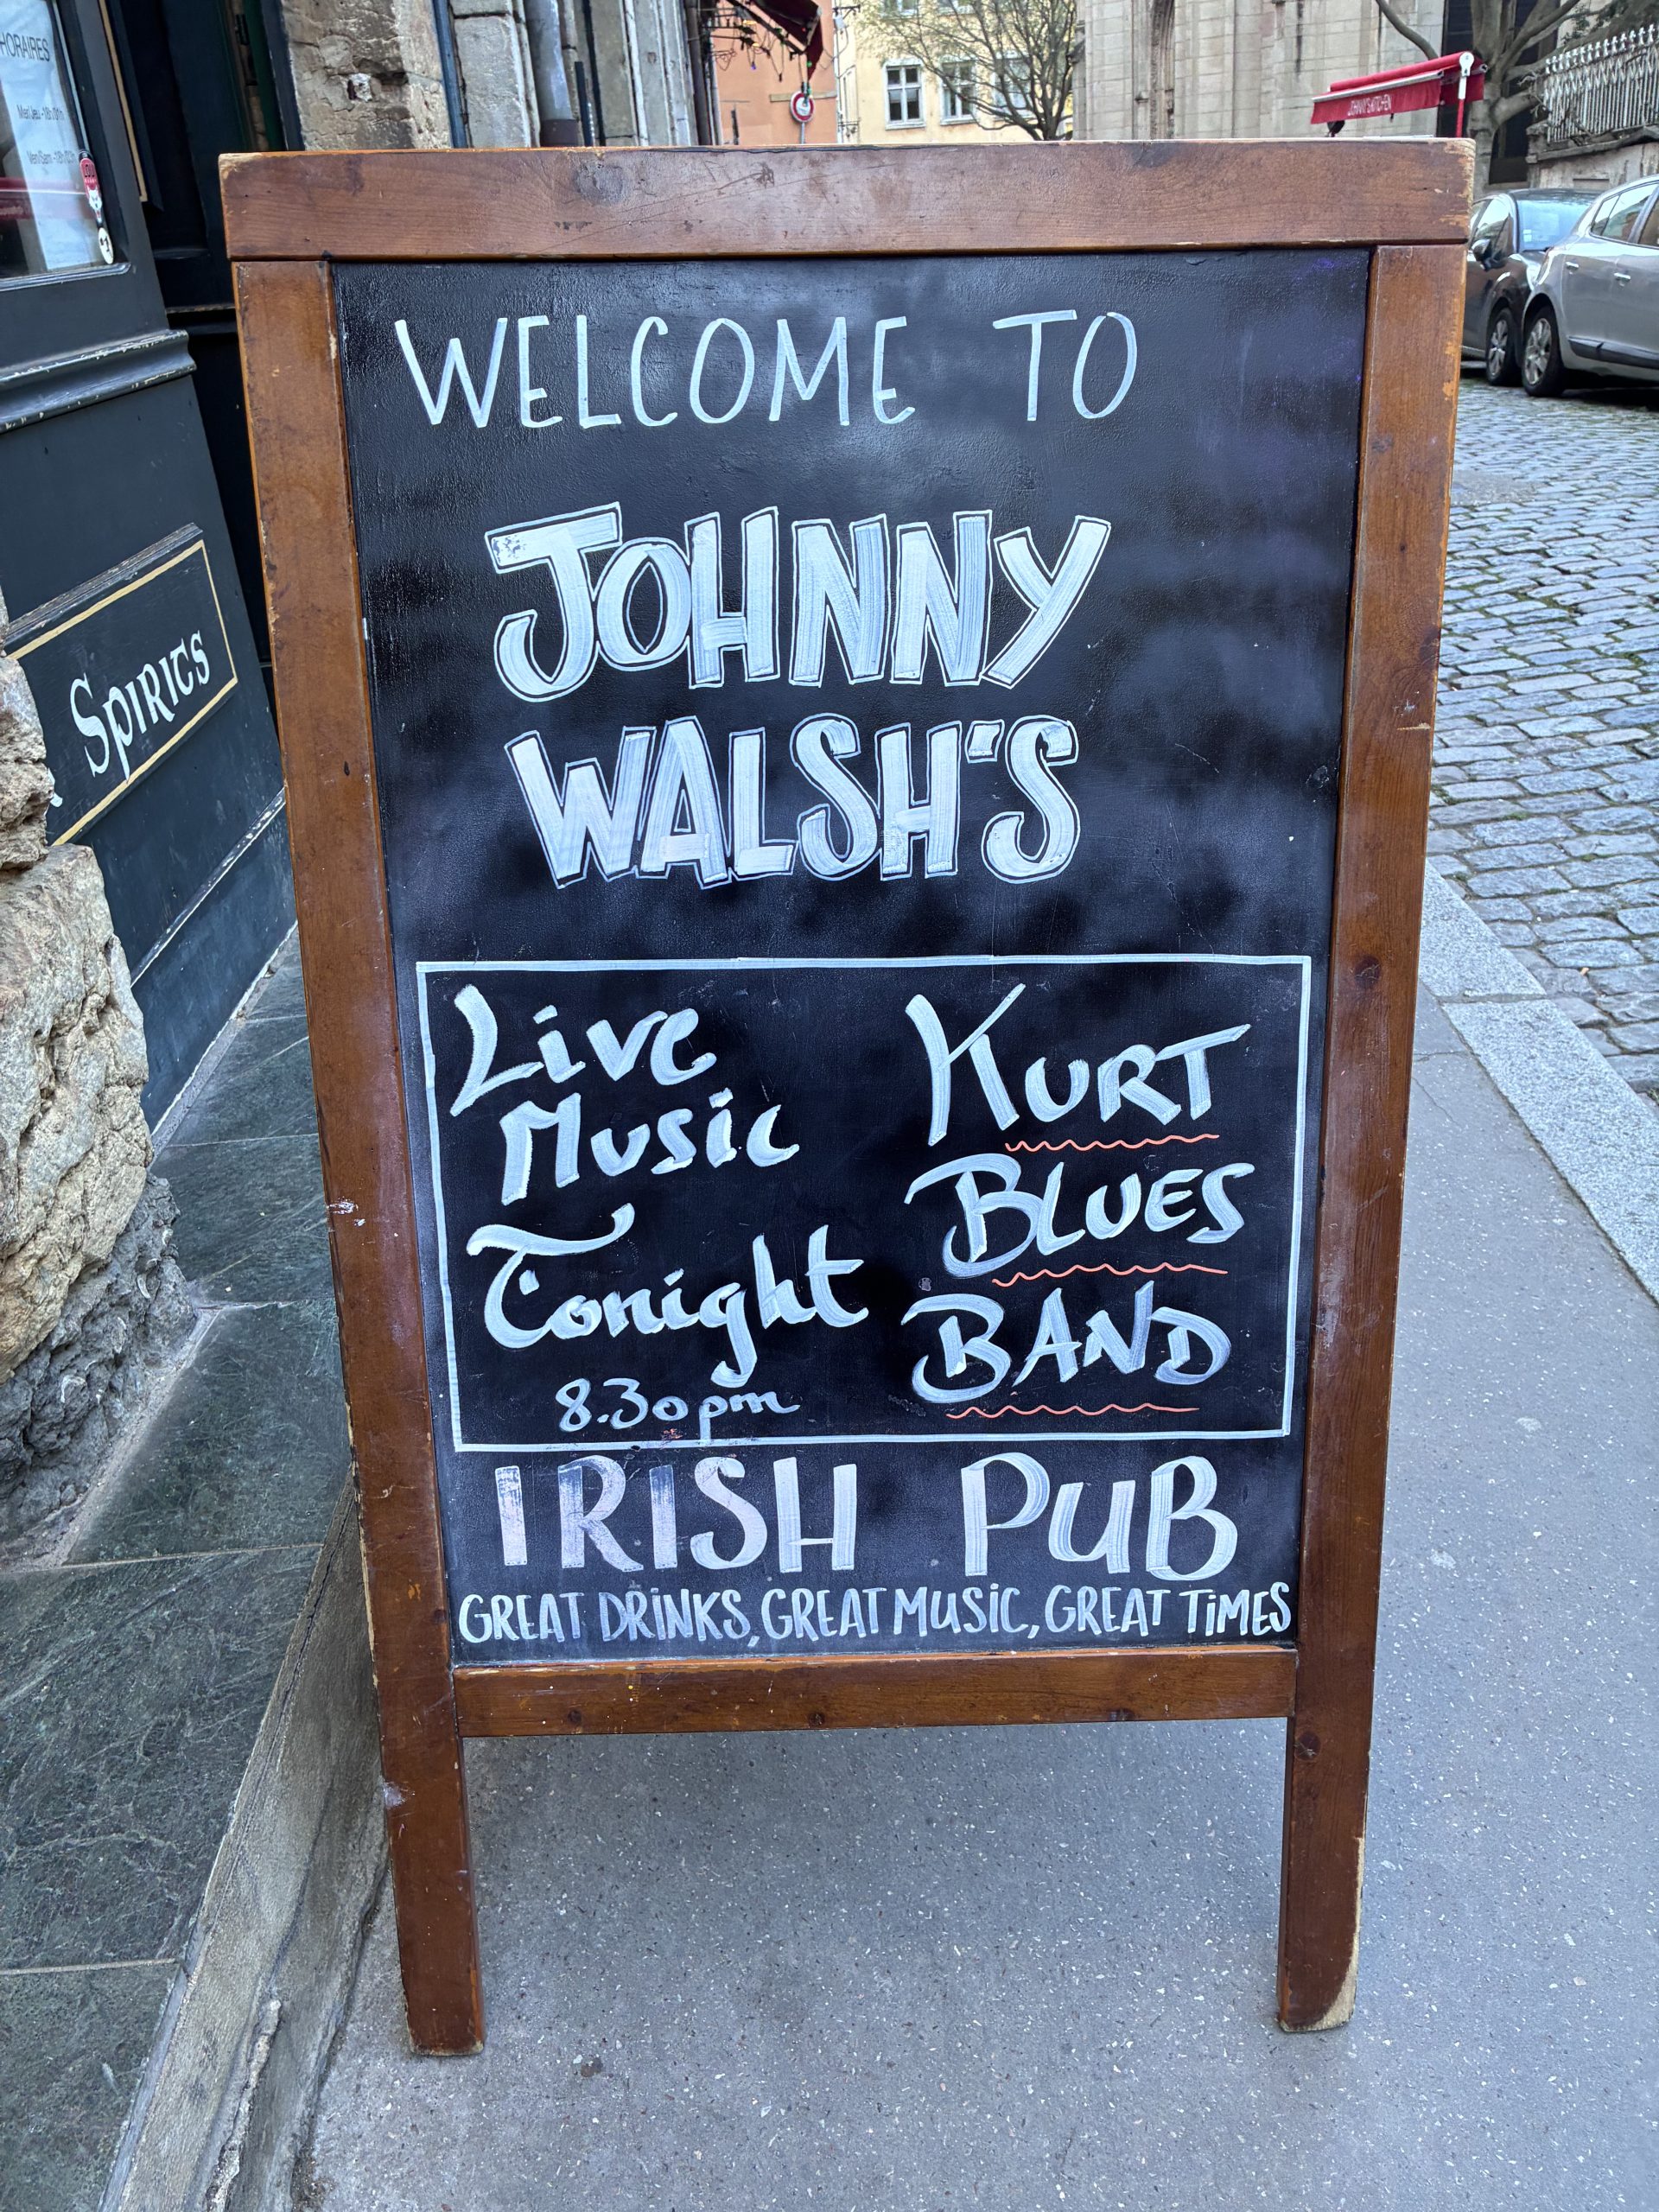 HORAIRES
SPIRITS
JOHNNY'S KITCHEN
WELCOME TO
JOHNNY
WALSH'S
Live
Music
Tonight
8.30pm
KURT
BLUES
BAND
IRISH PUB
GREAT DRiNKS, GREAT MUSiC, GREAT TiMES